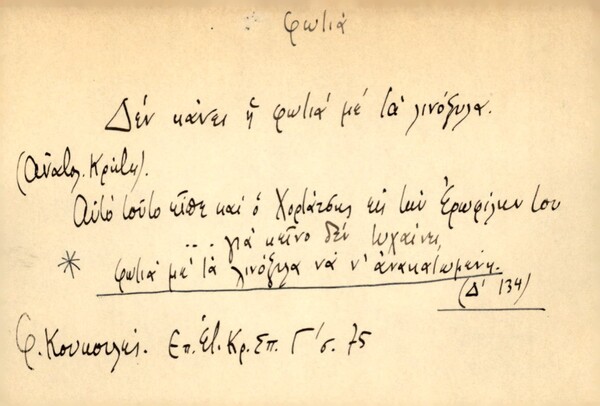 φωτιά
Δέν κάνει ἡ φωτιά μέ τά λινόξυλα.
(Ἀνατολ. Κρήτη).
Αὐτό τοῦτο εἶπε καί ὁ Χορτάτσης εἰς τήν Ἐρωφίλην του
... γιά κεῖνο δέν τυχαίνει
* φωτιά μέ τά λινόξυλα νά ν' ἀνακατωμένη.
(Δ' 134)
Φ. Κουκουλές. Επ. Ετ. Κρ. Σπ. Γ' σ. 75